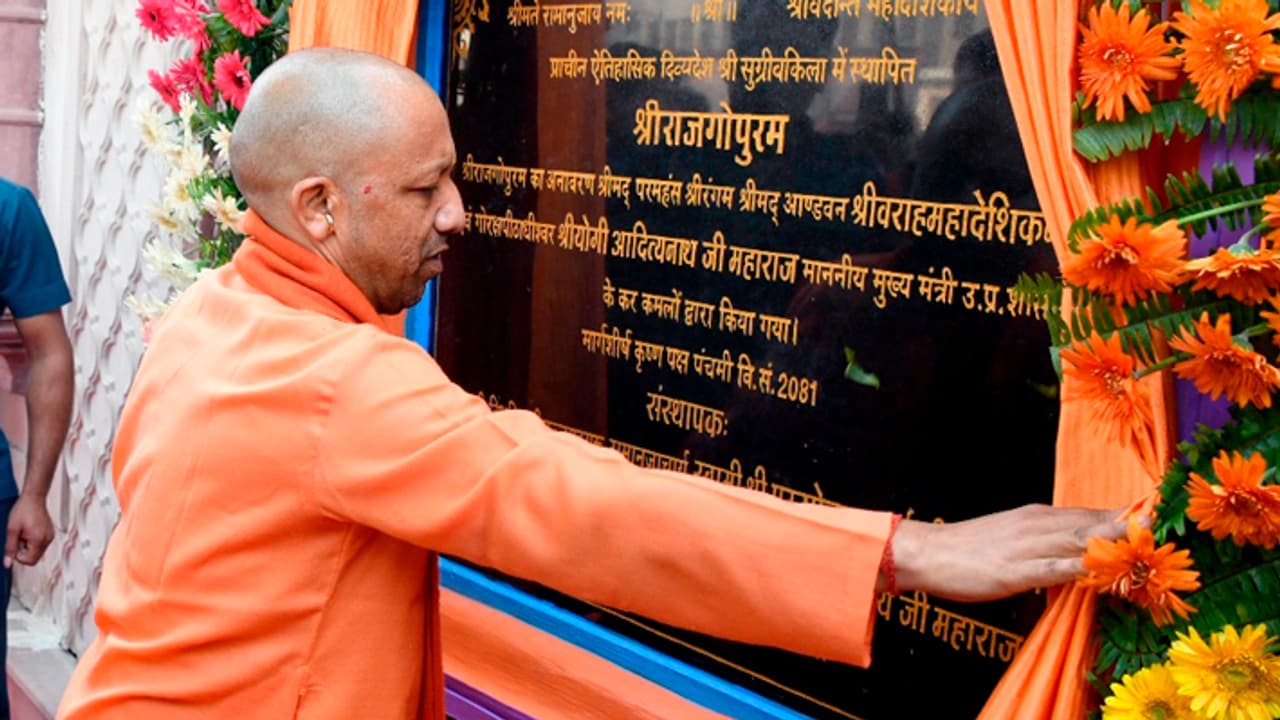 श्रीमते रामानुजाय नमः ॥श्री॥ श्रीवेदान्त महादेशिकाय
प्राचीन ऐतिहासिक दिव्यदेश श्री सुग्रीवकिला में स्थापित
श्रीराजगोपुरम
श्रीराजगोपुरम का अनावरण श्रीमद् परमहंस श्रीरंगम श्रीमद् आण्डवन श्रीवराहमहादेशिकन
गोरक्षपीठाधीश्वर श्रीयोगी आदित्यनाथ जी महाराज माननीय मुख्य मंत्री उ.प्र.
के कर कमलों द्वारा किया गया।
मार्गशीर्ष कृष्ण पक्ष पंचमी वि.सं. 2081
संस्थापकः
स्वामी श्री
जी महाराज